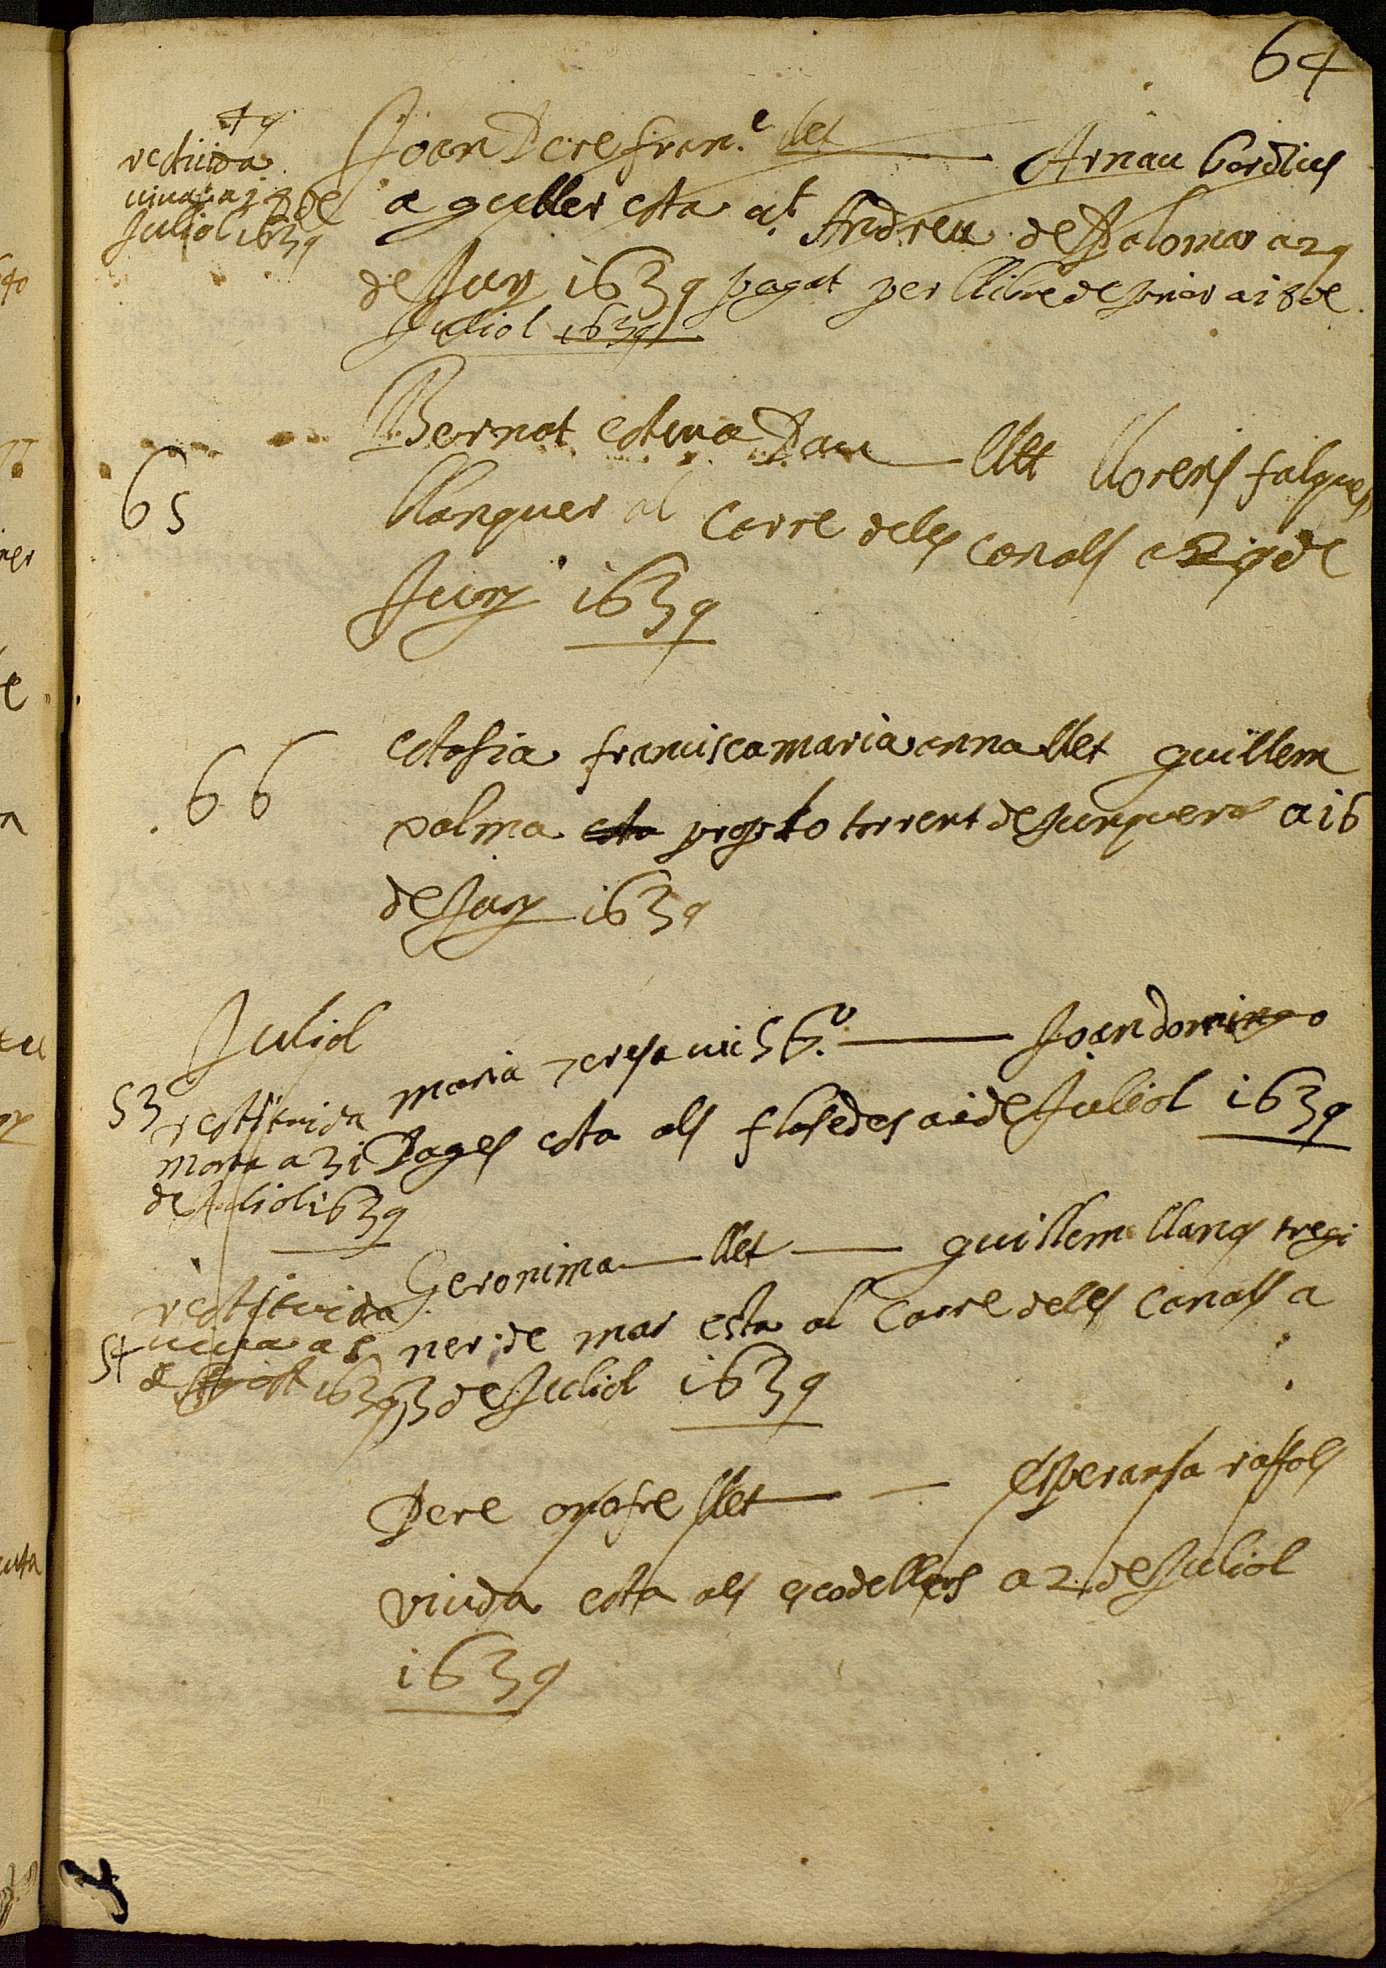 64
restituida
viva a 18 de
Juliol 1639
Joan Pere fran.e llet Arnau
a guller esta a St Andreu de Palomar a 29
de Juny 1639 pagat per llibre de prior a 18 de
Juliol 1639
65
Bernat esteva Pau llet llorens falgues
blanquer al Carre deles Canals a de
Juny 1639
66
estasia francisca maria anna llet guillem
palma esta prop lo torrent de Junqueres a 16
de Juny 1639
Juliol
53
restituida
morta a 31
de Juliol 1639
maria Teresa Joan domingo
Pages esta als flasades a i de Juliol 1639
54
restituida
viva a 8
de Agost 1639
Geronima llet guillem llans tregi
ner de mar esta al Carre deles Canals a
3 de Juliol 1639
Pere onofre llet esperansa rafols
viuda esta als escodellers a 2 de Juliol
1639